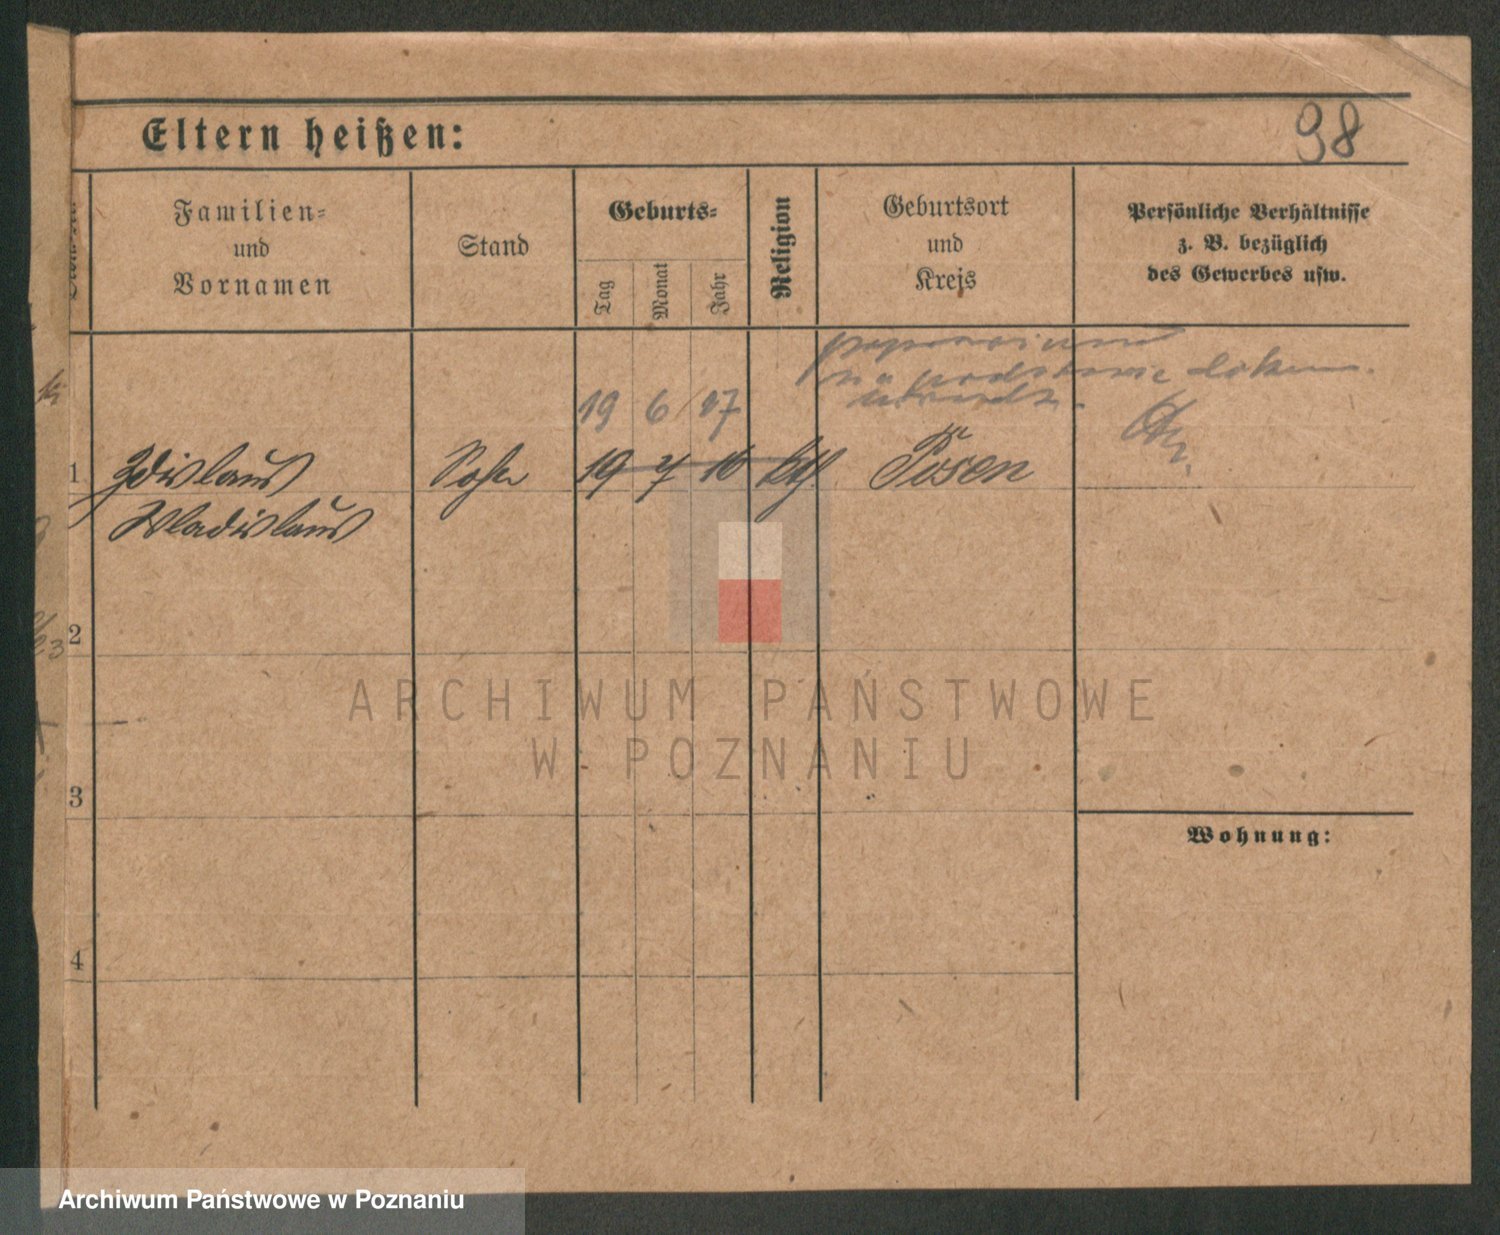 Eltern heißen:
98
Familien-
und
Vornamen
Stand
Geburts-
Tag
Monat
Jahr
Religion
Geburtsort
und
Kreis
Persönliche Verhältnisse
z. B. bezüglich
des Gewerbes usw.
poprawiono
na podstawie dokum.
19 6 17
1 Zdislaus Sohn 19 7 16 kth Posen
Wladislaus
2
3
4
Wohnung:
ARCHIWUM PAŃSTWOWE
W POZNANIU
Archiwum Państwowe w Poznaniu